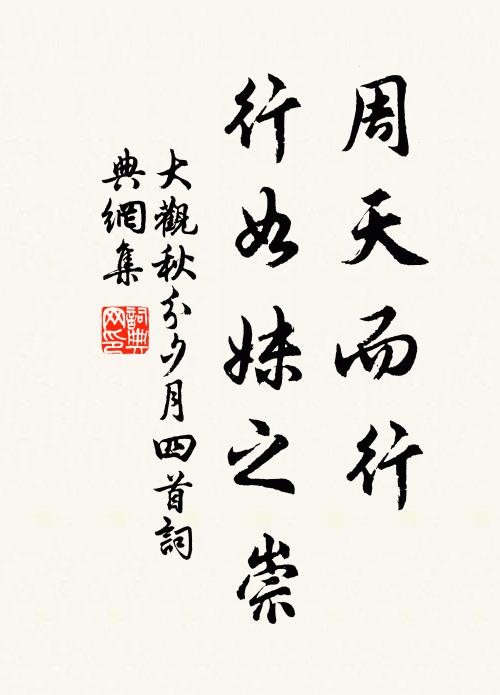 周天而行
行如妹之崇
大觀秋分夕月四首詞
典網集
詞典
网印